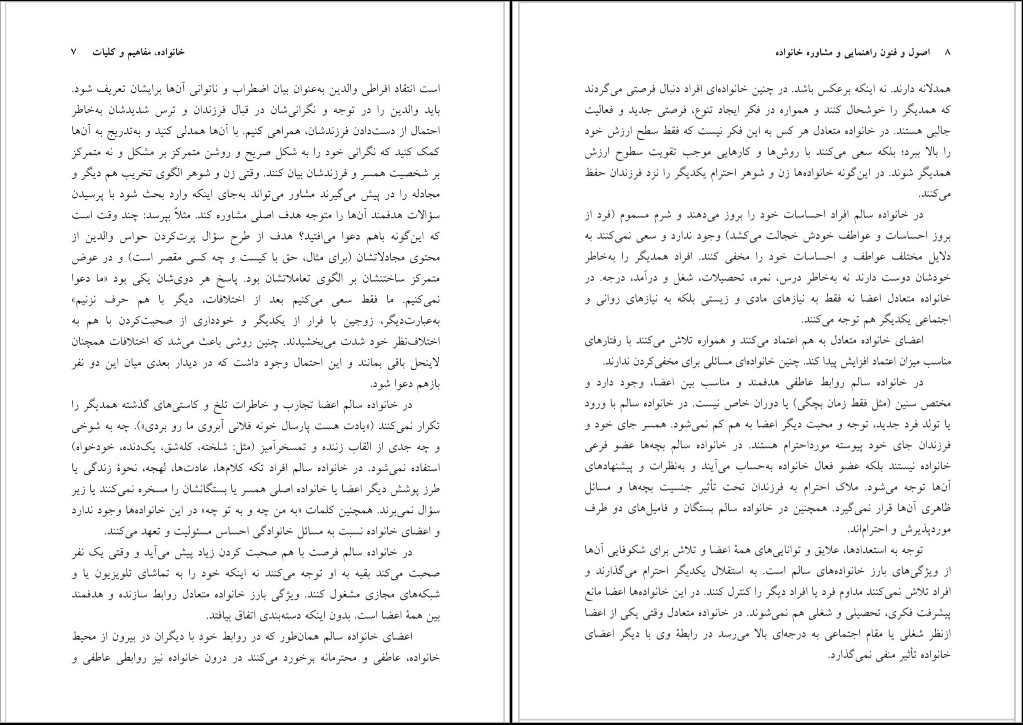 خانواده، مفاهیم و کلیات ۷
است انتقاد افراطی والدین به‌عنوان بیان اضطراب و ناتوانی آن‌ها برایشان تعریف شود.
باید والدین را در توجه و نگرانی‌شان در قبال فرزندان و ترس شدیدشان به‌خاطر
احتمال از دست‌دادن فرزندشان، همراهی کنیم. با آن‌ها همدلی کنید و به‌تدریج به آن‌ها
کمک کنید که نگرانی خود را به شکل صریح و روشن متمرکز بر مشکل و نه متمرکز
بر شخصیت همسر و فرزندشان بیان کنند. وقتی زن و شوهر الگوی تخریب هم دیگر و
مجادله را در پیش می‌گیرند مشاور می‌تواند به‌جای اینکه وارد بحث شود با پرسیدن
سؤالات هدفمند آن‌ها را متوجه هدف اصلی مشاوره کند. مثلاً بپرسد: چند وقت است
که این‌گونه باهم دعوا می‌افتید؟ هدف از طرح سؤال پرت‌کردن حواس والدین از
محتوی مجادلاتشان (برای مثال، حق با کیست و چه کسی مقصر است) و در عوض
متمرکز ساختنشان بر الگوی تعاملاتشان بود. پاسخ هر دوی‌شان یکی بود «ما دعوا
نمی‌کنیم. ما فقط سعی می‌کنیم بعد از اختلافات، دیگر با هم حرف نزنیم»
به‌عبارت‌دیگر، زوجین با فرار از یکدیگر و خودداری از صحبت‌کردن با هم به
اختلاف‌نظر خود شدت می‌بخشیدند. چنین روشی باعث می‌شد که اختلافات همچنان
لاینحل باقی بمانند و این احتمال وجود داشت که در دیدار بعدی میان این دو نفر
بازهم دعوا شود.
در خانواده سالم اعضا تجارب و خاطرات تلخ و کاستی‌های گذشته همدیگر را
تکرار نمی‌کنند («یادت هست پارسال خونه فلانی آبروی ما رو بردی»). چه به شوخی
و چه جدی از القاب زننده و تمسخرآمیز (مثل: شلخته، کله‌شق، یک‌دنده، خودخواه)
استفاده نمی‌شود. در خانواده سالم افراد تکه کلام‌ها، عادت‌ها، لهجه، نحوۀ زندگی یا
طرز پوشش دیگر اعضا یا خانواده اصلی همسر یا بستگانشان را مسخره نمی‌کنند یا زیر
سؤال نمی‌برند. همچنین کلمات «به من چه و به تو چه» در این خانواده‌ها وجود ندارد
و اعضای خانواده نسبت به مسائل خانوادگی احساس مسئولیت و تعهد می‌کنند.
در خانواده سالم فرصت با هم صحبت کردن زیاد پیش می‌آید و وقتی یک نفر
صحبت می‌کند بقیه به او توجه می‌کنند نه اینکه خود را به تماشای تلویزیون یا و
شبکه‌های مجازی مشغول کنند. ویژگی بارز خانواده متعادل روابط سازنده و هدفمند
بین همۀ اعضا است. بدون اینکه دسته‌بندی اتفاق بیافتد.
اعضای خانواده سالم همان‌طور که در روابط خود با دیگران در بیرون از محیط
خانواده، عاطفی و محترمانه برخورد می‌کنند در درون خانواده نیز روابطی عاطفی و
۸ اصول و فنون راهنمایی و مشاوره خانواده
همدلانه دارند. نه اینکه برعکس باشد. در چنین خانواده‌ای افراد دنبال فرصتی می‌گردند
که همدیگر را خوشحال کنند و همواره در فکر ایجاد تنوع، فرصتی جدید و فعالیت
جالبی هستند. در خانواده متعادل هر کس به این فکر نیست که فقط سطح ارزش خود
را بالا ببرد؛ بلکه سعی می‌کنند با روش‌ها و کارهایی موجب تقویت سطوح ارزش
همدیگر شوند. در این‌گونه خانواده‌ها زن و شوهر احترام یکدیگر را نزد فرزندان حفظ
می‌کنند.
در خانواده سالم افراد احساسات خود را بروز می‌دهند و شرم مسموم (فرد از
بروز احساسات و عواطف خودش خجالت می‌کشد) وجود ندارد و سعی نمی‌کنند به
دلایل مختلف عواطف و احساسات خود را مخفی کنند. افراد همدیگر را به‌خاطر
خودشان دوست دارند نه به‌خاطر درس، نمره، تحصیلات، شغل و درآمد، درجه. در
خانواده متعادل اعضا نه فقط به نیازهای مادی و زیستی بلکه به نیازهای روانی و
اجتماعی یکدیگر هم توجه می‌کنند.
اعضای خانواده متعادل به هم اعتماد می‌کنند و همواره تلاش می‌کنند با رفتارهای
مناسب میزان اعتماد افزایش پیدا کند. چنین خانواده‌ای مسائلی برای مخفی‌کردن ندارند.
در خانواده سالم روابط عاطفی هدفمند و مناسب بین اعضا، وجود دارد و
مختص سنین (مثل فقط زمان بچگی) یا دوران خاص نیست. در خانواده سالم با ورود
یا تولد فرد جدید، توجه و محبت دیگر اعضا به هم کم نمی‌شود. همسر جای خود و
فرزندان جای خود پیوسته مورداحترام هستند. در خانواده سالم بچه‌ها عضو فرعی
خانواده نیستند بلکه عضو فعال خانواده به‌حساب می‌آیند و به‌نظرات و پیشنهادهای
آن‌ها توجه می‌شود. ملاک احترام به فرزندان تحت تأثیر جنسیت بچه‌ها و مسائل
ظاهری آن‌ها قرار نمی‌گیرد. همچنین در خانواده سالم بستگان و فامیل‌های دو طرف
موردپذیرش و احترام‌اند.
توجه به استعدادها، علایق و توانایی‌های همۀ اعضا و تلاش برای شکوفایی آن‌ها
از ویژگی‌های بارز خانواده‌های سالم است. به استقلال یکدیگر احترام می‌گذارند و
افراد تلاش نمی‌کنند مداوم فرد یا افراد دیگر را کنترل کنند. در این خانواده‌ها اعضا مانع
پیشرفت فکری، تحصیلی و شغلی هم نمی‌شوند. در خانواده متعادل وقتی یکی از اعضا
ازنظر شغلی یا مقام اجتماعی به درجه‌ای بالا می‌رسد در رابطۀ وی با دیگر اعضای
خانواده تأثیر منفی نمی‌گذارد.